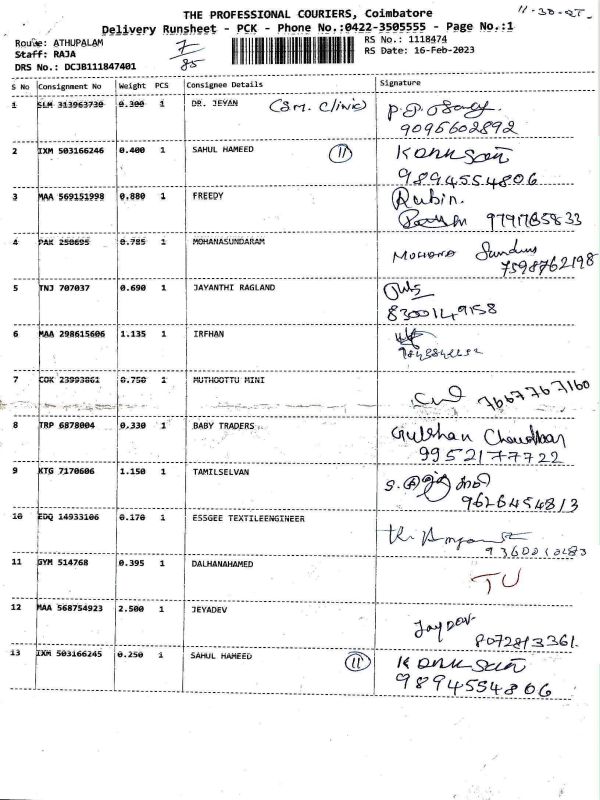 THE PROFESSIONAL COURIERS, Coimbatore
Delivery Runsheet - PCK - Phone No.:0422-3505555 - Page No.:1
Route: ATHUPALAM
Staff: RAJA
DRS No.: DCJB111847401
7/85
RS No.: 1118474
RS Date: 16-Feb-2023
S No Consignment No Weight PCS Consignee Details Signature
1 SLM 313963730 0.300 1 DR. JEYAN (S.M. Clinic)
9095602892
2 IXM 503166246 0.400 1 SAHUL HAMEED 11
9894554806
3 MAA 569151998 0.880 1 FREEDY Rubin.
9791785833
4 PAK 250695 0.785 1 MOHANASUNDARAM
7598762198
5 TNJ 707037 0.690 1 JAYANTHI RAGLAND
8300149158
6 MAA 298615606 1.135 1 IRFHAN
7 COK 23993861 0.750 1 MUTHOOTTU MINI
7667767160
8 TRP 6878004 0.330 1 BABY TRADERS Gulshan Choudhary
9952177722
9 KTG 7170606 1.150 1 TAMILSELVAN
9626454813
10 EDQ 14933106 0.170 1 ESSGEE TEXTILEENGINEER
11 GYM 514768 0.395 1 DALHANAHAMED TU
12 MAA 568754923 2.500 1 JEYADEV Jaydev
8072813361.
13 IXM 503166245 0.250 1 SAHUL HAMEED 11
9894554806